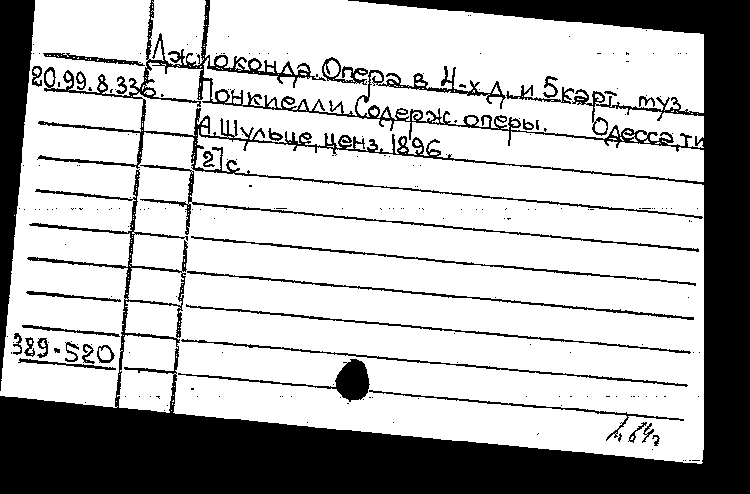 Джиоконда. Опера в 4-х д. и 5 карт., муз.
20.99.8.336. Понкиелли. Содерж. оперы. Одесса, ти
А. Шульце, ценз. 1896.
[2] с.
389-520